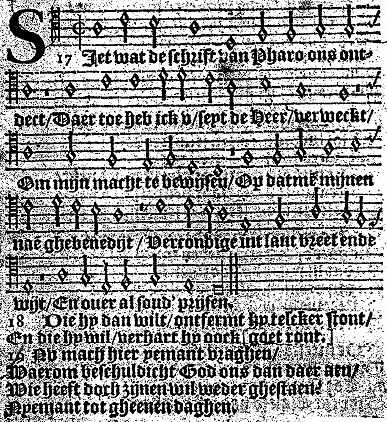 S
17 Iet wat de schrift van Pharo ons ont-
dect / Daer toe heb ick v / sept de Heer / verweckt /
Om mijn macht te bewijsen / Op datmē mijnen
naē ghebenedijt / Vercondige int lant breet ende
wijt / En ouer al soud' prijsen.
18. Die hy dan wilt / ontfermt hy telcker stont /
En die hy wil / verhart hy oock goet ront.
19 Nv mach hier yemant vraghen /
Waerom beschuldicht God ons dan daer aen /
Wie heeft doch zijnen wil weder ghestaen?
Nyemant tot gheenen daghen.